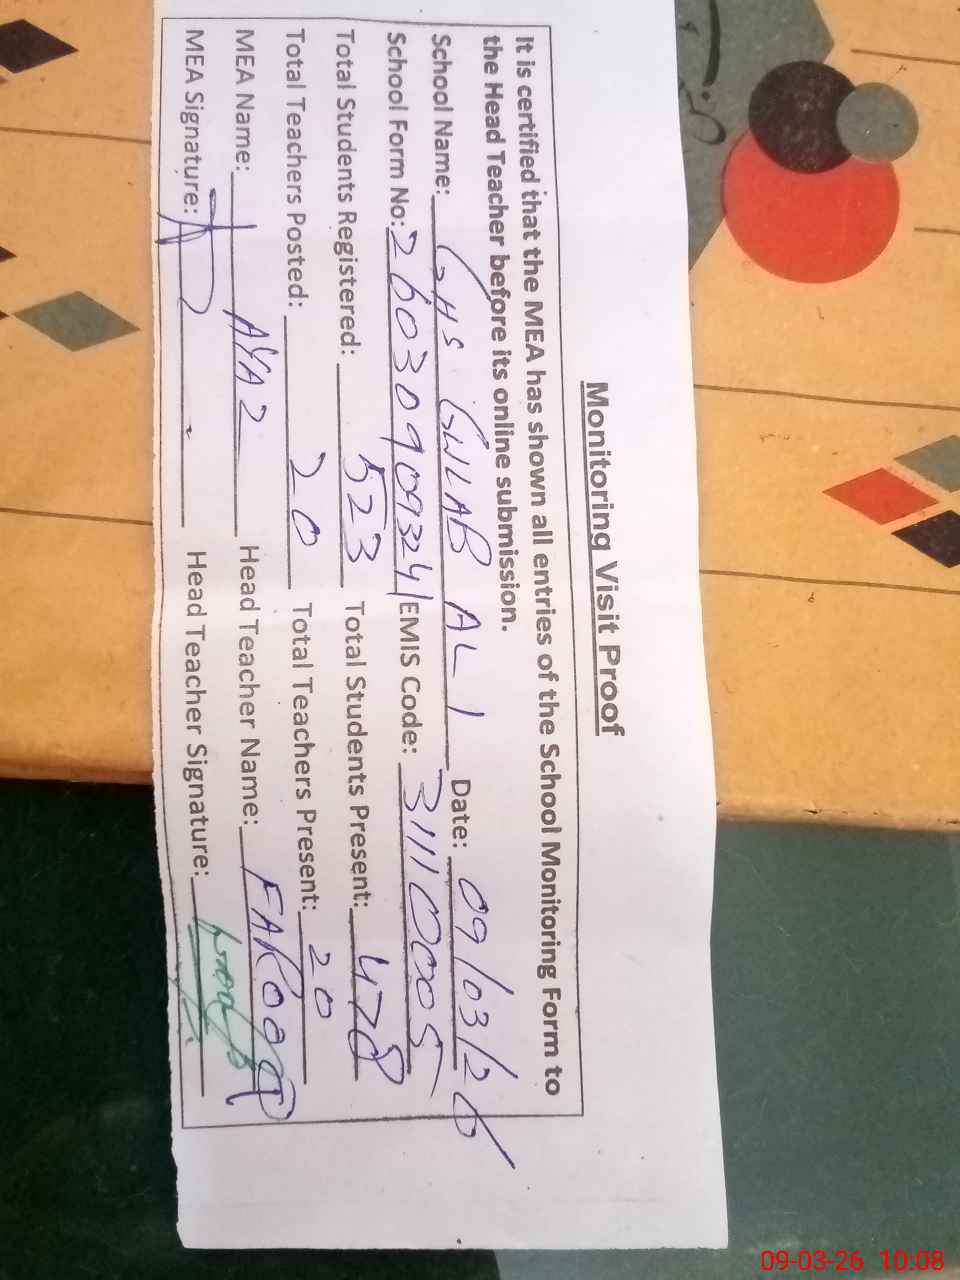 Monitoring Visit Proof
It is certified that the MEA has shown all entries of the School Monitoring Form to
the Head Teacher before its online submission.
School Name: GHS GULAB ALI Date: 09/03/26
School Form No: 26030909324 EMIS Code: 31110005
Total Students Registered: 523 Total Students Present: 478
Total Teachers Posted: 20 Total Teachers Present: 20
MEA Name: AYAZ Head Teacher Name: FAROOQ
MEA Signature: Head Teacher Signature:
09-03-26 10:08